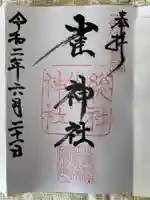 奉拝
雀神社
令和二年六月二十一日
総社